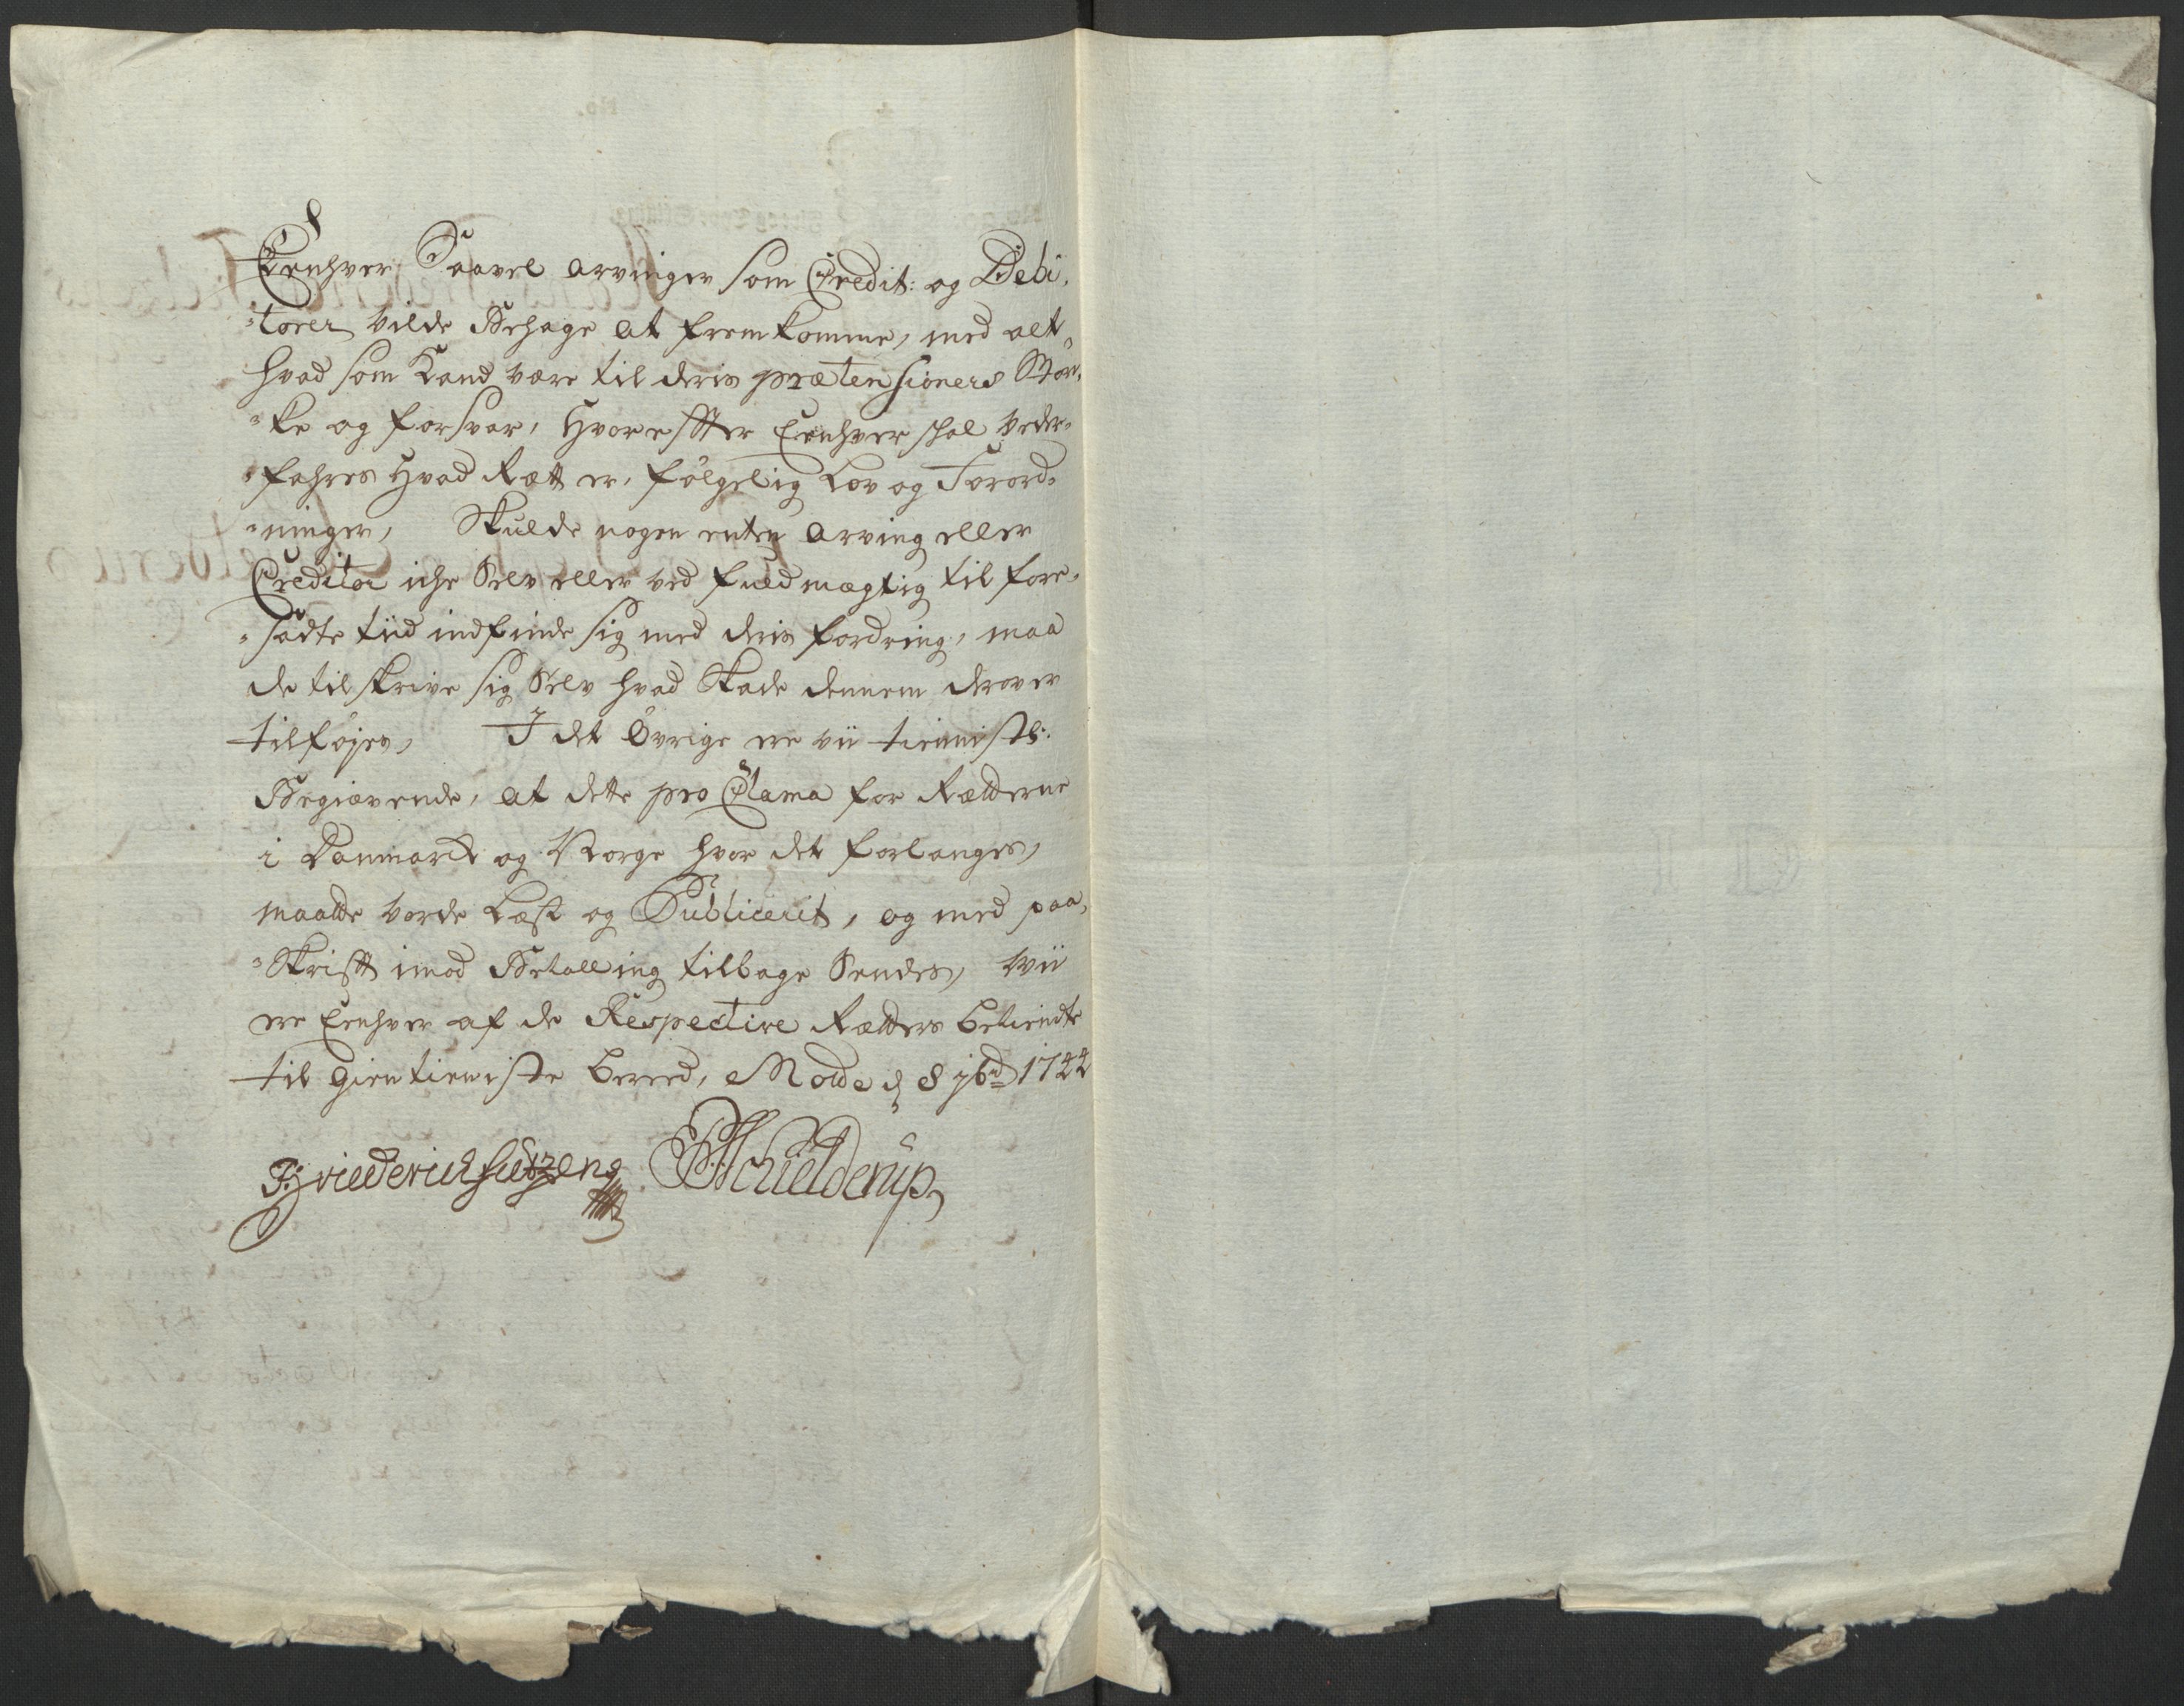 Eenhver Saavel arvinger som Credit: og Debi,
"torer vilde Behage at fremkomme, med alt,
hvad som Kand være til deris prætensioners Stør,
"ke og forsvar, Hvorefter Eenhver skal veder,
"fahres Hvad Rætt er, følgelig Lov og Forord,
"ninger, Skulde nogen enten arving eller
Creditor iche Selv eller ved fuldmægtig til fore,
"sadte tiid indfinde sig med deris fordring, maa
de tilskrive sig Selv hvad Skade dennem derover
tilføjes, I det Øvrige ere vii tienistl:
Begiærende, at dette pro Clama for Rætterne
i Danmarck og Norge hvor det forlanges,
maatte vorde Læst og Publicerit, og med paa,
"Skrifft imod Betalling tilbage Sendes, Wii
ere Eenhver af de Respective Rætters betiendte
til Gientieniste bereed, Molde d 8 7bd 1744
Schielderup,